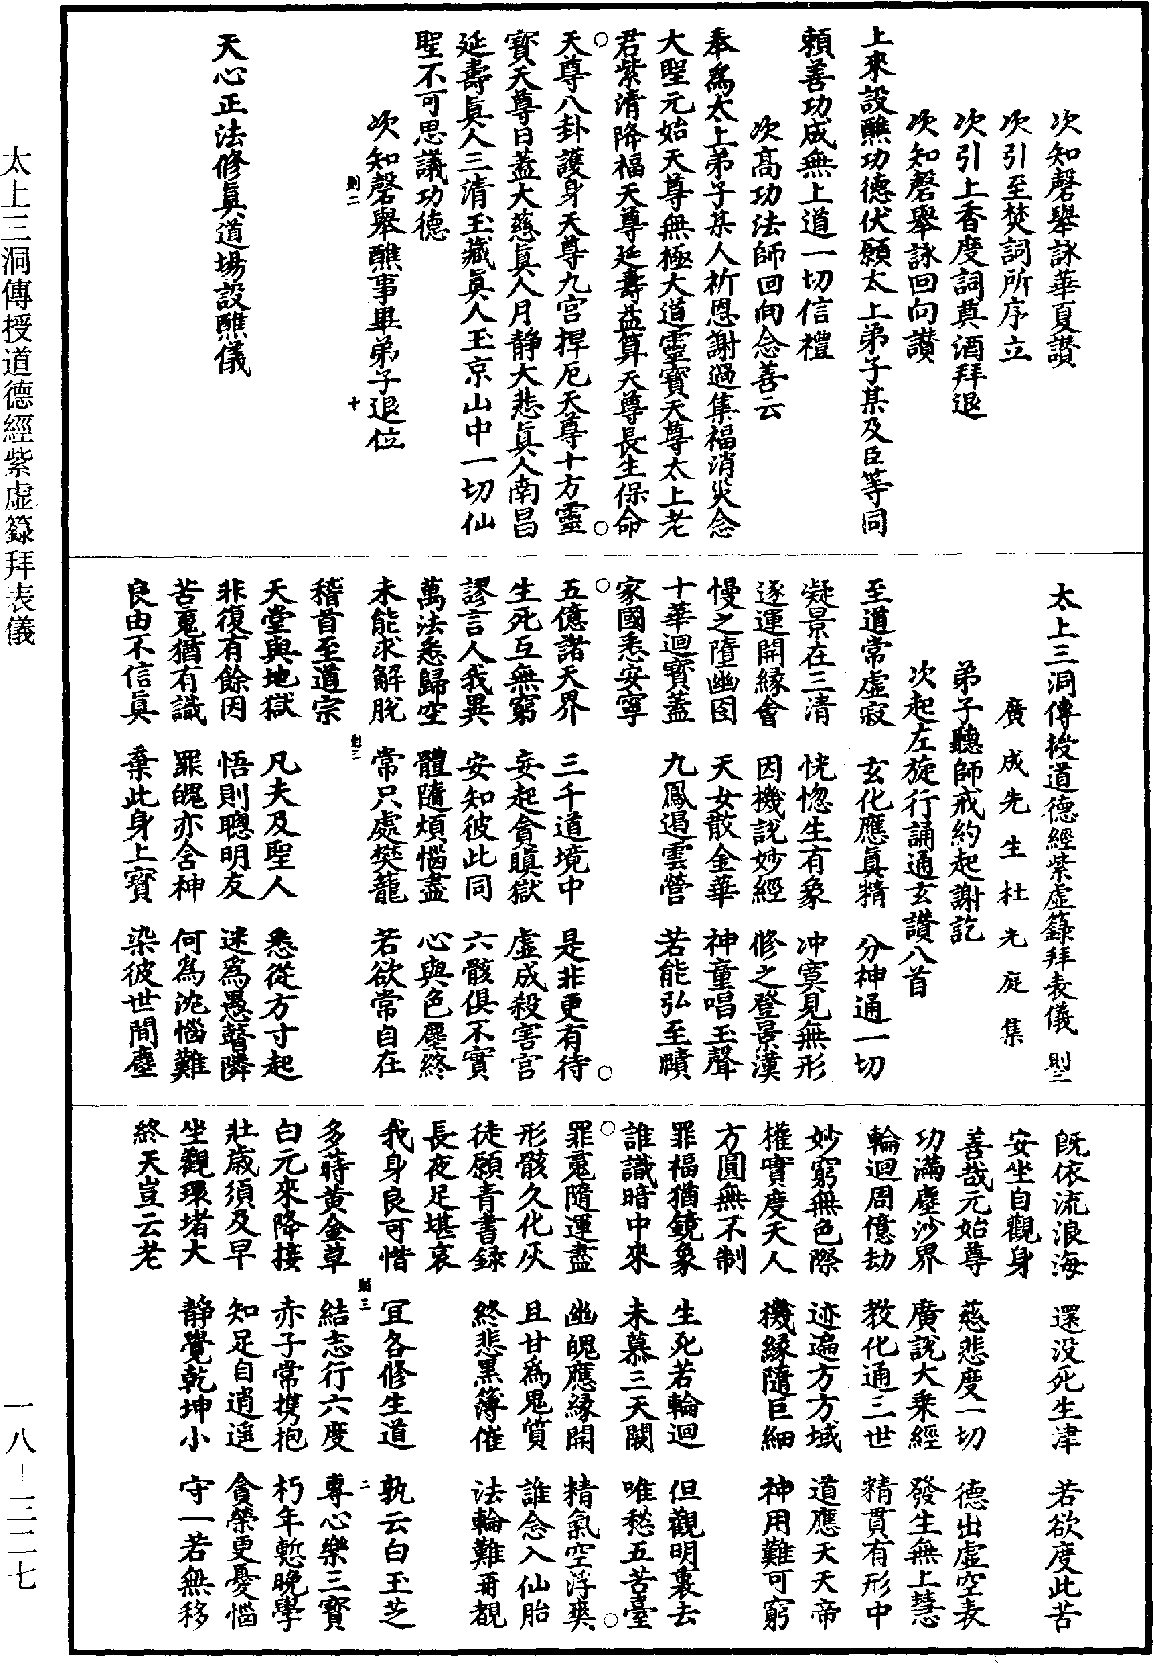 次知磬舉詠華夏讚
次引至焚詞所序立
次引上香度詞奠酒拜退
次知磬舉詠回向讚
上來設醮功德伏願太上弟子某及臣等同
賴善功成無上道一切信禮
次高功法師回向念善云
奉為太上弟子某人祈恩謝過集福消災念
大聖元始天尊無極大道靈寶天尊太上老
君紫清降福天尊延壽益算天尊長生保命
天尊八卦護身天尊九宮捍厄天尊十方靈
寶天尊日蓋大慈真人月靜大悲真人南昌
延壽真人三清玉藏真人玉京山中一切仙
聖不可思議功德
次知磬舉醮事畢弟子退位
則二 十
天心正法修真道場設醮儀
太上三洞傳授道德經紫虛籙拜表儀 則三
廣成先生杜光庭集
弟子聽師戒約起謝訖
次起左旋行誦通玄讚八首
至道常虛寂 玄化應真精 分神通一切
凝景在三清 恍惚生有象 沖寞見無形
逐運開緣會 因機說妙經 修之登景漢
慢之墮幽囹 天女散金華 神童唱玉聲
十華迴寶蓋 九鳳遏雲營 若能弘至賾
家國悉安寧
五億諸天界 三千道境中 是非更有待
生死互無窮 妄起貪瞋獄 虛成殺害宮
謬言人我異 安知彼此同 六骸俱不實
萬法悉歸空 體隨煩惱盡 心與色塵終
未能求解脫 常只處樊籠 若欲常自在
則三
稽首至道宗
天堂與地獄 凡夫及聖人 悉從方寸起
非復有餘因 悟則聰明友 迷為愚瞽隣
苦䰟猶有識 罪魄亦含神 何為沈惱難
良由不信真 棄此身上寶 染彼世間塵
既依流浪海 還沒死生津 若欲度此苦
安坐自觀身
善哉元始尊 慈悲度一切 德出虛空表
功滿塵沙界 廣說大乘經 發生無上慧
輪迴周億劫 教化通三世 精貫有形中
妙窮無色際 迹遍方方域 道應天天帝
權實度天人 機緣隨巨細 神用難可窮
方圓無不制
罪福猶鏡象 生死若輪迴 但觀明裏去
誰識暗中來 未慕三天闕 唯愁五苦臺
罪䰟隨運盡 幽魄應緣開 精氣空浮爽
形骸久化灰 且甘為鬼質 誰念入仙胎
徒願青書錄 終悲黑簿催 法輪難再覩
長夜足堪哀
我身良可惜 宜各修生道 孰云白玉芝
則三 二
多蒔黃金草 結志行六度 專心樂三寶
白元來降接 赤子常携抱 朽年慙晚學
壯歲須及早 知足自逍遙 貪榮更憂惱
坐觀環堵大 靜覺乾坤小 守一若無移
終天豈云老
太上三洞傳授道德經紫虛籙拜表儀
一八－三二七